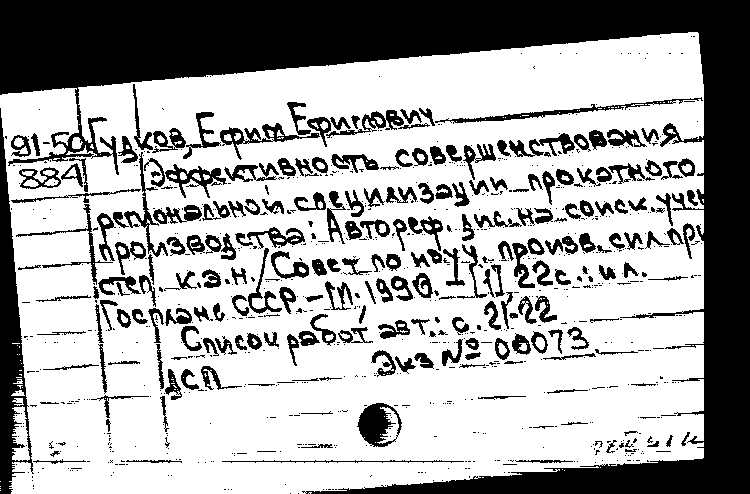 91-50 Гудков, Ефим Ефимович
884 Эффективность совершенствования
региональной специлизации прокатного
производства: Автореф. дис. на соиск. учен
степ. к.э.н. / Совет по изуч. произв. сил при
Госплане СССР. – М. 1990. – [1] 22с.: ил.
Список работ авт.: с. 21-22
ДСП Экз № 00073.